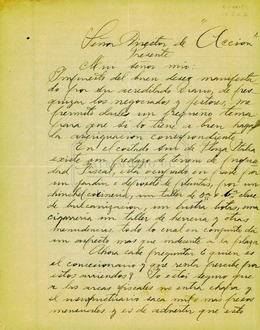 Señor Director de "Accion"
Presente
Muy señor mio:
Impuesto del buen deseo manifestado
por su acreditado Diario de pesquizar
los negociados y
permito darles un pequeño tema
para que si lo tiene a bien haga
la averiguacion correspondiente
En el costado Sur de Plaza Italia
existe un pedazo de terreno de propiedad
Fiscal, esta ocupado en parte por
un jardin y deposito de plantas, por un
almacen un taller de
de bulcanizacion, un botas, una
cigarreria un taller de herreria y otras
menudencias, todo lo cual en conjunto da
un aspecto mas que indecente a la plaza
Ahora cabe preguntar quien es
el concesionario y que renta percibe por
estos arriendos? Yo estoy seguro que
a las arcas fiscales no entra chapa y
el usufructuario saca mil o mas pesos
mensuales y es de advertir que esto